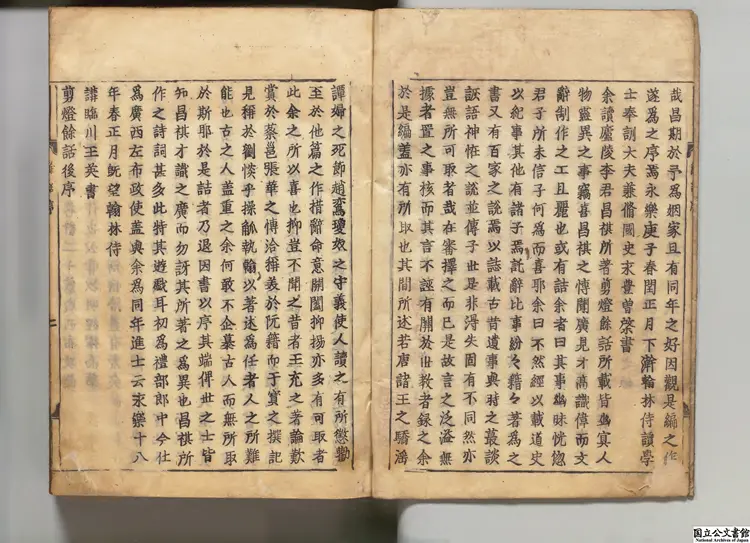 哉昌期於予為姻家且有同年之好因觀是編之作
遂為之序焉永樂庚子春閏正月下澣翰林侍讀學
士奉訓大夫兼脩國史永豊曽棨書
余讀廬陵李君昌祺所著剪燈餘話所載皆幽冥人
物靈異之事竊喜昌祺之博聞廣見才高識偉而文
辭制作之工且麗也或有詰余者曰其事幽昧恍惚
君子所未信子何為而喜耶余曰不然經以載道史
以紀事其他有諸子焉託辭比事紛〻籍〻著為之
書又有百家之說焉以誌載古昔遺事與時之叢談
詼語神怪之說並傳子世是非得失固有不同然亦
豈無所可取者哉在審擇之而已是故言之泛濫無
據者置之事核而其言不誣有關於世教者録之余
於是編盖亦有所取也其間所述若唐諸王之驕滛
譚婦之死節趙鸞瓊奴之守義使人讀之有所懲勸
至於他篇之作措辭命意開闔抑揚亦多有可取者
此余之所以喜也抑豈不聞之昔者王充之著論歎
賞於蔡邕張華之博洽稱義於阮籍而于寳之撰記
見稱於劉惔乎操觚執翰以著述為任者人之所難
能也古之人盖重之余何敢不企慕古人而無所取
於斯耶於是詰者乃退因書以序其端俾世之士皆
知昌祺才識之廣而勿訝其所著之為異也昌祺所
作之詩詞甚多此特其遊戲耳初為禮部郎中今仕
為廣西左布政使盖與余為同年進士云永樂十八
年春正月既望翰林侍
講臨川王英書
剪燈餘話後序
国立公文書館
National Archives of Japan